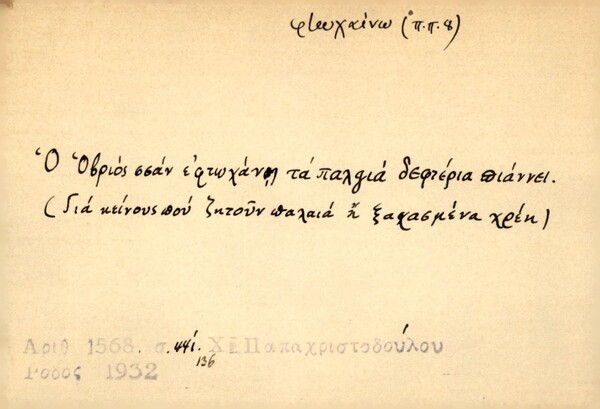 φτωχαίνω (π.π. 8)
Ὁ Ὁβριός σσάν εφτωχάνῃ τά παλῃιά δεφτέρια πιάννει.
(Γιά κείνους πού ζητοῦν παλαιά ἤ ξαχασμένα χρέη)
Αριθ 1568. σ. 441. Χ. Παπαχριστοδούλου
136
Ρόδος 1932